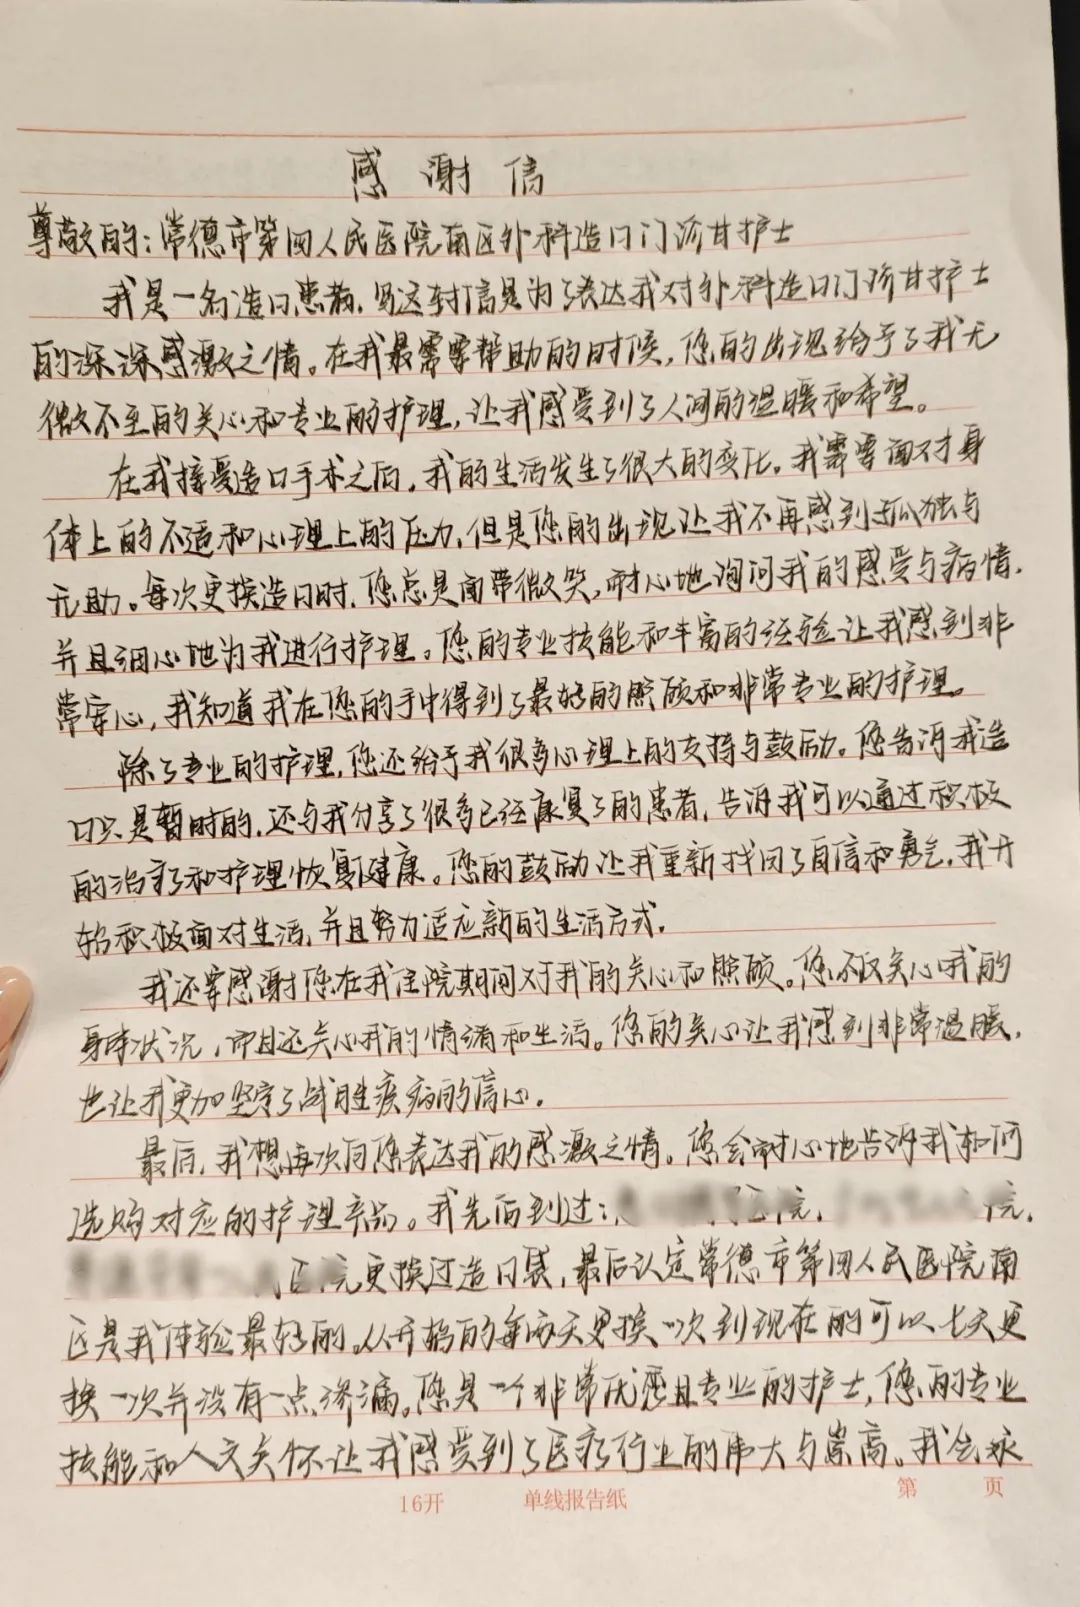 感谢信
尊敬的：常德市第四人民医院南区外科造口门诊甘护士
我是一名造口患者，写这封信是为了表达我对外科造口门诊甘护士
的深深感激之情。在我最需要帮助的时候，您的出现给予了我无
微不至的关心和专业的护理，让我感受到了人间的温暖和希望。
在我接受造口手术之后，我的生活发生了很大的变化。我需要面对身
体上的不适和心理上的压力，但是您的出现让我不再感到孤独与
无助。每次更换造口时，您总是面带微笑，耐心地询问我的感受与病情，
并且细心地为我进行护理。您的专业技能和丰富的经验让我感到非
常安心，我知道我在您的手中得到了最好的照顾和非常专业的护理。
除了专业的护理，您还给予我很多心理上的支持与鼓励。您告诉我造
口只是暂时的，还与我分享了很多已经康复了的患者，告诉我可以通过积极
的治疗和护理恢复健康。您的鼓励让我重新找回了自信和勇气，我开
始积极面对生活，并且努力适应新的生活方式。
我还要感谢您在我住院期间对我的关心和照顾。您不仅关心我的
身体状况，而且还关心我的情绪和生活。您的关心让我感到非常温暖，
也让我更加坚定了战胜疾病的信心。
最后，我想再次向您表达我的感激之情。您会耐心地告诉我如何
选购对应的护理产品。我先后到过：院，院，
医院更换过造口袋，最后认定常德市第四人民医院南
区是我体验最好的。从开始的每两天更换一次到现在的可以七天更
换一次并没有一点渗漏。您是一个非常优秀且专业的护士，您的专业
技能和人文关怀让我感受到了医疗行业的伟大与崇高。我会永
16开 单线报告纸 第 页